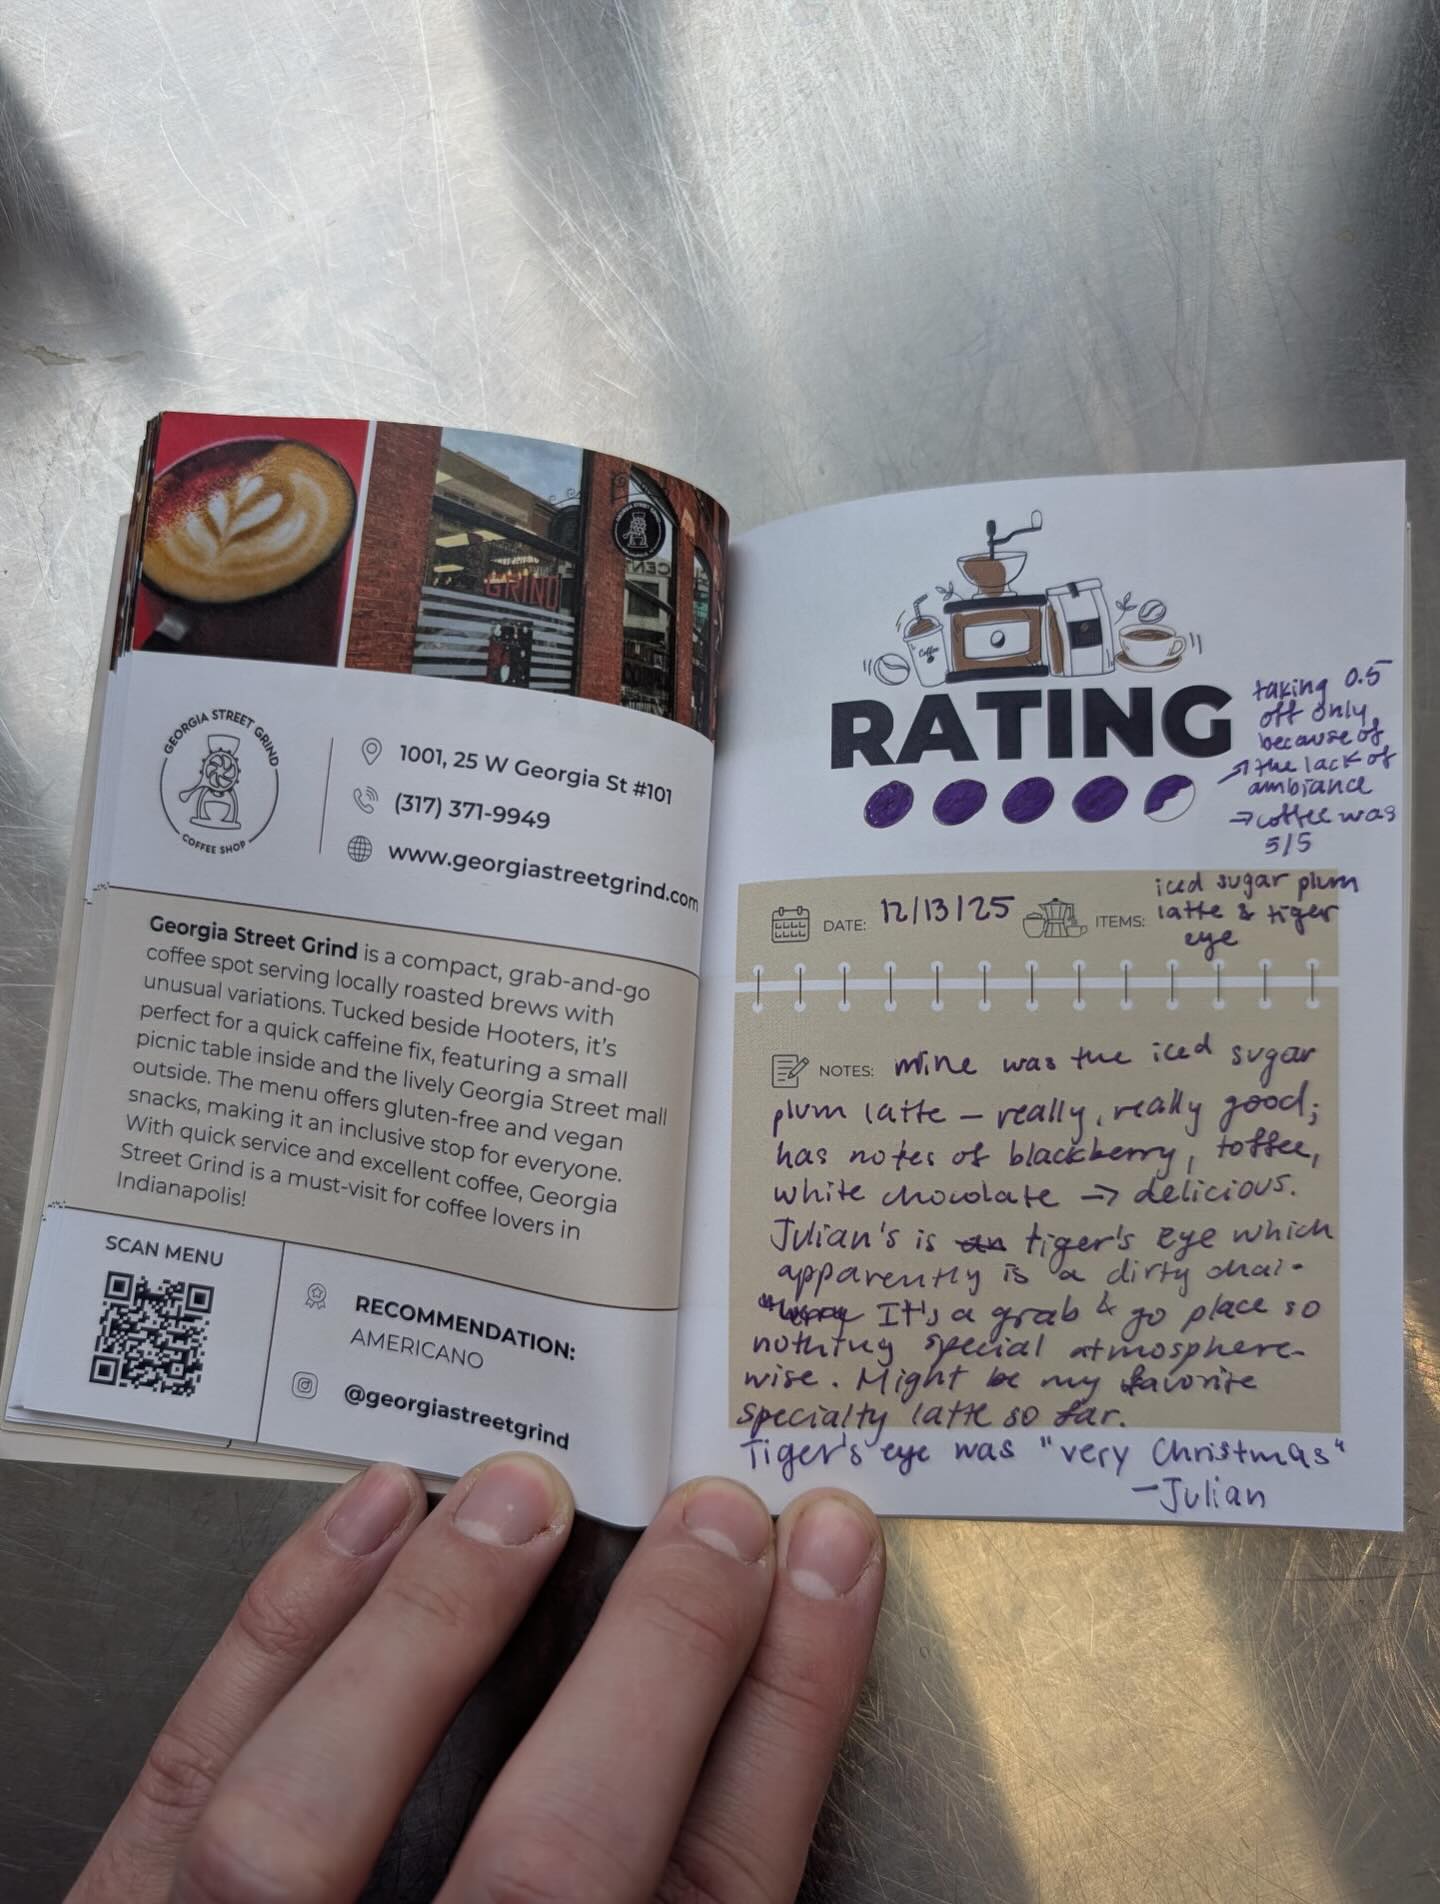 GRIND
GEORGIA STREET GRIND
COFFEE SHOP
1001, 25 W Georgia St #101
(317) 371-9949
www.georgiastreetgrind.com
Georgia Street Grind is a compact, grab-and-go
coffee spot serving locally roasted brews with
unusual variations. Tucked beside Hooters, it's
perfect for a quick caffeine fix, featuring a small
picnic table inside and the lively Georgia Street mall
outside. The menu offers gluten-free and vegan
snacks, making it an inclusive stop for everyone.
With quick service and excellent coffee, Georgia
Street Grind is a must-visit for coffee lovers in
Indianapolis!
SCAN MENU
RECOMMENDATION:
AMERICANO
@georgiastreetgrind
Coffee
RATING
taking 0.5
off only
because of
→ the lack of
ambiance
→ coffee was
5/5
DATE: 12/13/25
ITEMS: iced sugar plum
latte & tiger
eye
NOTES: mine was the iced sugar
plum latte – really, really good;
has notes of blackberry, toffee,
white chocolate → delicious.
Julian's is an tiger's eye which
apparently is a dirty chai.
It's a grab & go place so
nothing special atmosphere-
wise. Might be my favorite
specialty latte so far.
Tiger's eye was "very Christmas"
–Julian